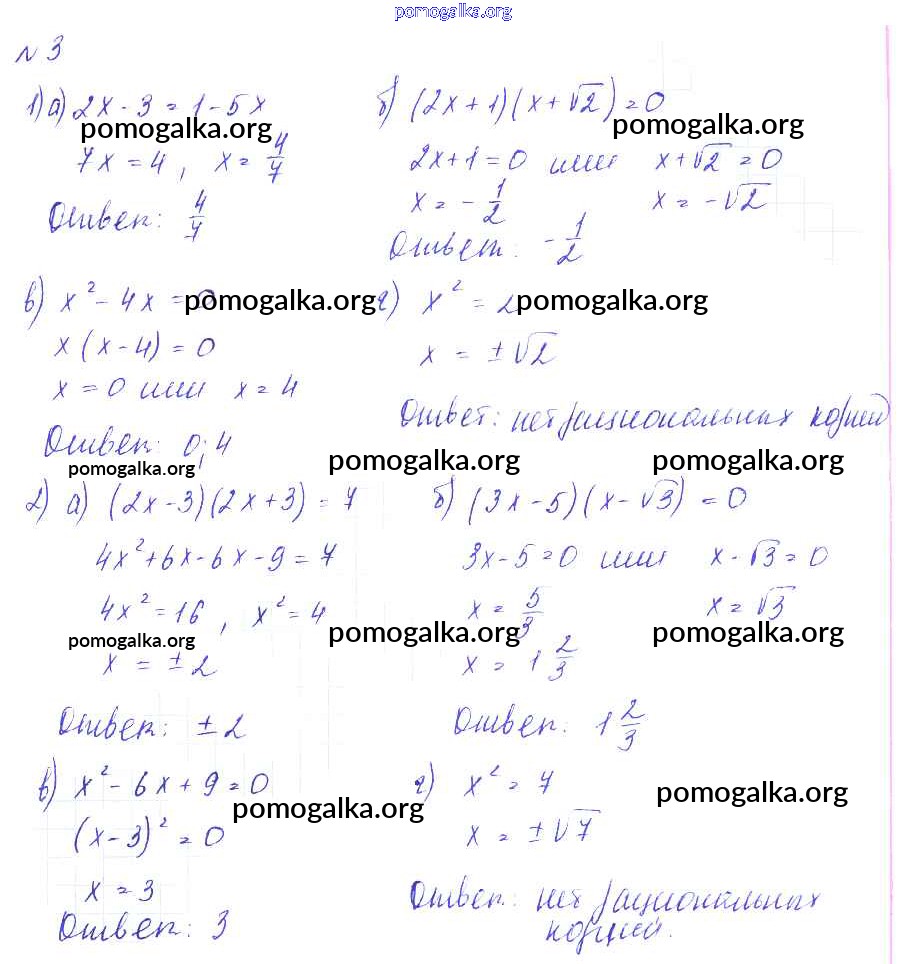 pomogalka.org
№ 3
1) а) 2x - 3 = 1 - 5x
б) (2x + 1)(x + √2) = 0
pomogalka.org
pomogalka.org
7x = 4, x = 4/7
2x + 1 = 0 или x + √2 = 0
Ответ: 4/7
x = - 1/2
x = -√2
Ответ: - 1/2
в) x² - 4x = 0
pomogalka.org
г) x² = 2
pomogalka.org
x (x - 4) = 0
x = ±√2
x = 0 или x = 4
Ответ: нет рациональных корней
Ответ: 0; 4
pomogalka.org
pomogalka.org
pomogalka.org
2) а) (2x - 3)(2x + 3) = 7
б) (3x - 5)(x - √3) = 0
4x² + 6x - 6x - 9 = 7
3x - 5 = 0 или x - √3 = 0
4x² = 16, x² = 4
x = 5/3
x = √3
pomogalka.org
pomogalka.org
pomogalka.org
x = ± 2
x = 1 2/3
Ответ: ± 2
Ответ: 1 2/3
в) x² - 6x + 9 = 0
г) x² = 7
pomogalka.org
pomogalka.org
(x - 3)² = 0
x = ±√7
x = 3
Ответ: нет рациональных
корней.
Ответ: 3